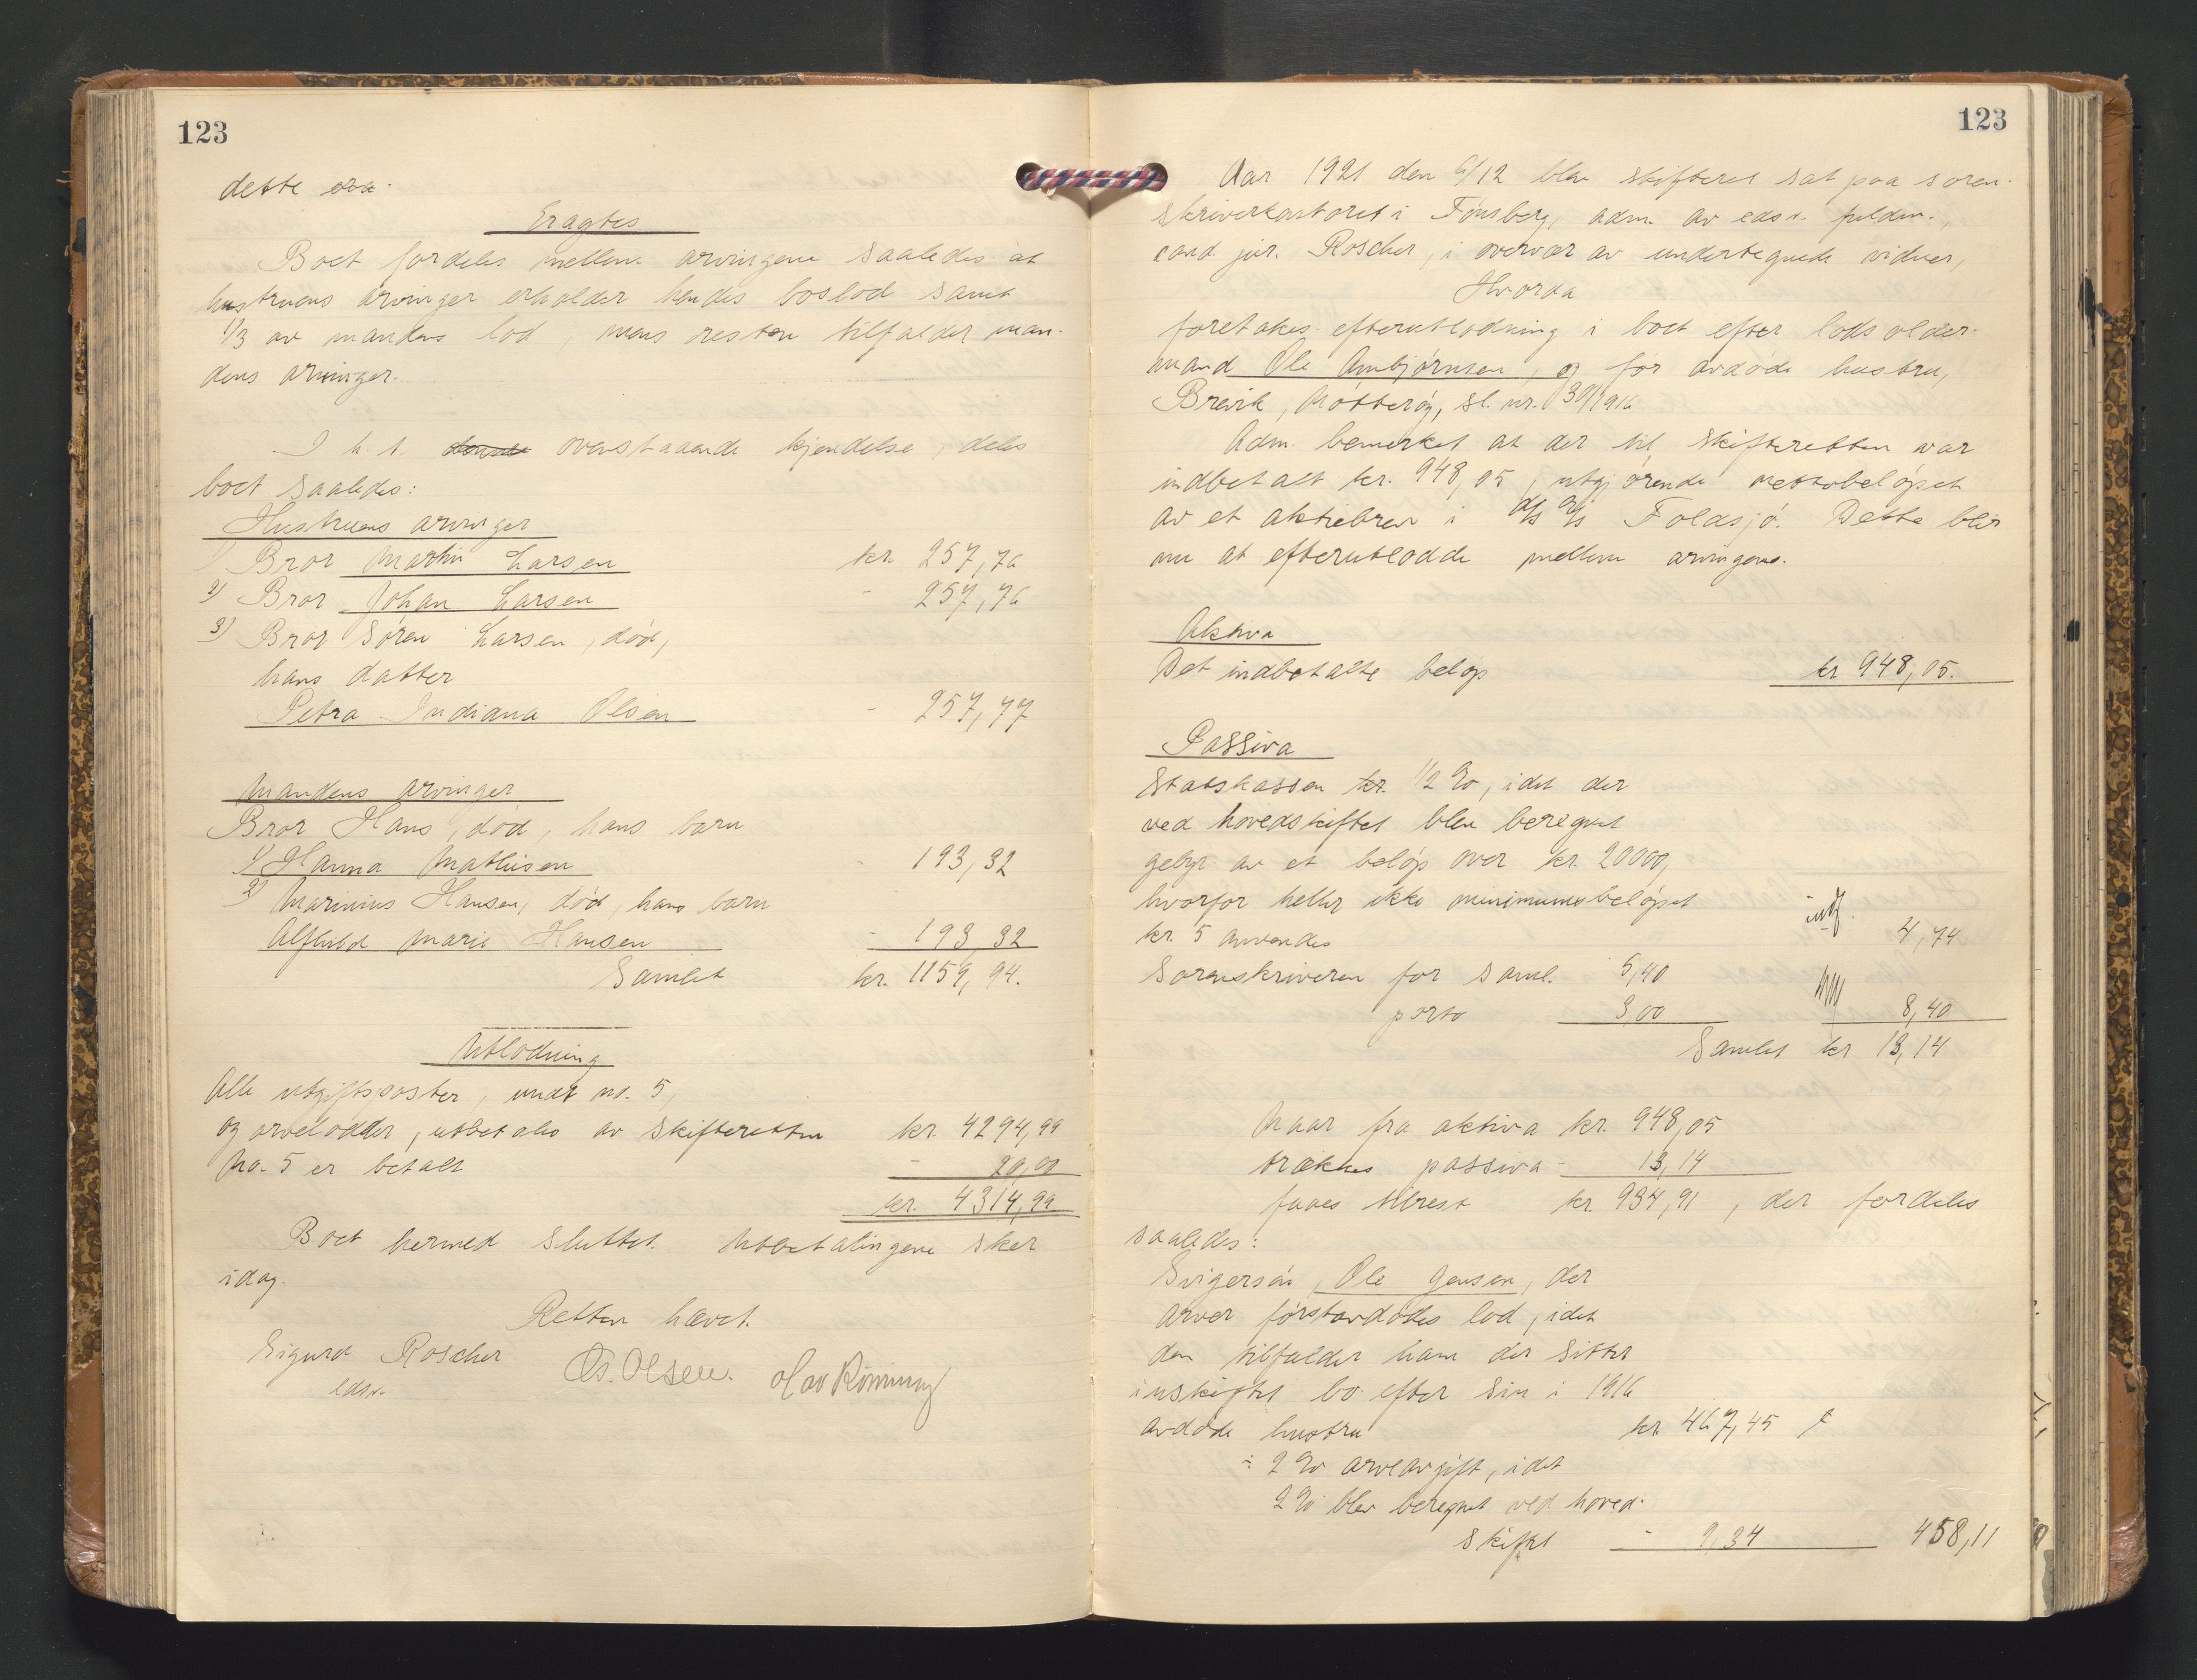 123
dette
Eragtes
Boet fordeles mellem arvingene saaledes at
hustruens arvinger erholder hendes boslod samt
1/3 av mandens lod, mens resten tilfalder man-
dens arvinger.
I h. t. ovenstaaende kjendelse, deles
boet saaledes:
Hustruens arvinger
1) Bror Martin Larsen kr. 257,76
2) Bror Johan Larsen - 257,76
3) Bror Søren Larsen, død,
hans datter
Petra Indiana Olsen - 257,77
Mandens arvinger
Bror Hans, død, hans barn
1) Hanna Mathisen - 193,32
2) Marinius Hansen, død, hans barn
Alfhild Marie Hansen - 193,32
Samlet kr. 1159,94.
Utlodning
Alle utgiftsposter, undt no. 5,
og arvelodder, utbetales av skifteretten kr. 4294,99
No. 5 er betalt - 20,00
kr. 4314,99
Boet hermed sluttet. Utbetalingene sker
idag.
Retten hævet.
Sigurd Roscher Os. Olsen. Olav Rønning
edsv.
123
Aar 1921 den 6/12 blev skifteret sat paa soren-
skriverkontoret i Tønsberg, adm. av edsv. fuldm.,
cand. jur. Roscher, i overvær av undertegnede vidner,
Hvorda
foretokes efterutlodning i boet efter lodsolder-
mand Ole Ambjørnsen, og før avdøde hustru,
Brevik, Nøtterøy, sl. nr. 30/1916
Adm. bemerket at der til skifteretten var
indbetalt kr. 948,05, utgjørende nettobeløpet
av et aktiebrev i d/s a/s Foldsjø. Dette blir
nu at efterutlodde mellem arvingene.
Aktiva
Det indbetalte beløp kr 948,05.
Passiva
Statskassen kr. 1/2 %, idet der
ved hovedskiftet blev beregnet
gebyr av et beløp over kr. 20000,
hvorfor heller ikke minimumsbeløpet
kr. 5 anvendes 4,74
Sorenskriveren for saml. 5,40
porto 3,00 8,40
Samlet kr 13,14
Naar fra aktiva kr. 948,05
trækkes passiva - 13,14
faaes tilrest kr. 934,91, der fordeles
saaledes:
Svigersøn, Ole Jensen, der
arver førstavdødes lod, idet
den tilfalder ham der sitter
i uskiftet bo efter sin i 1916
avdøde hustru kr. 467,45
÷ 2 % arveavgift, idet
2 % blev beregnet ved hoved-
skiftet - 9,34 458,11